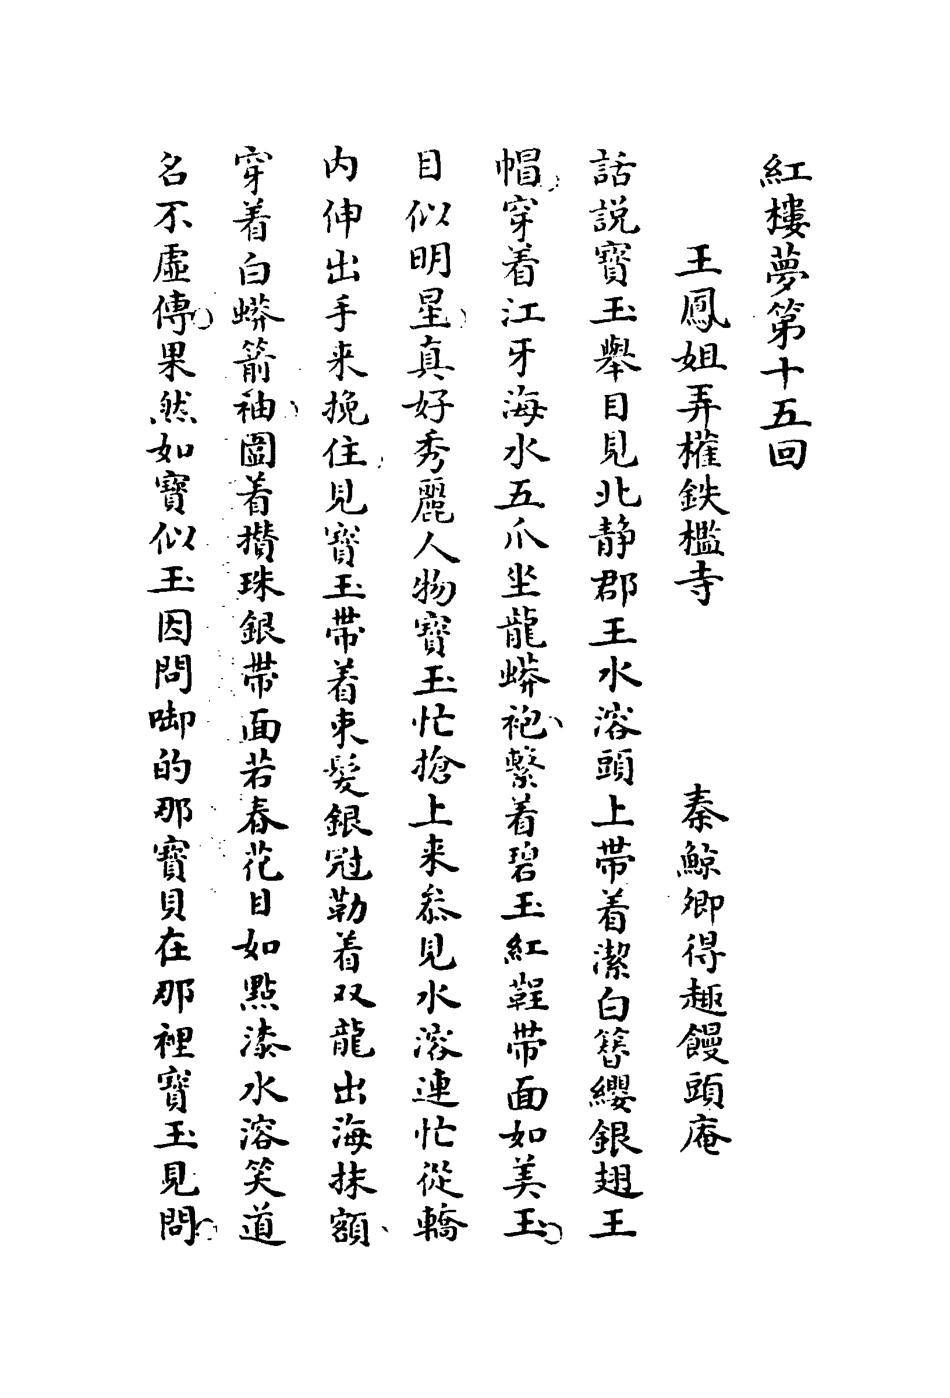 紅樓夢第十五回
王鳳姐弄權鉄檻寺　秦鯨卿得趣饅頭庵
話説寳玉舉目見北静郡王水溶頭上帶着潔白簪纓銀翅王
帽穿着江牙海水五爪坐龍蟒袍繫着碧玉紅鞓帶面如美玉
目似明星真好秀麗人物寳玉忙搶上来叅見水溶連忙從轎
内伸出手来挽住見寳玉帶着束髪銀冠勒着双龍出海抹額
穿着白蟒箭袖圍着攅珠銀帶面若春花目如點漆水溶笑道
名不虛傳果然如寳似玉因問啣的那寳貝在那裡寳玉見問